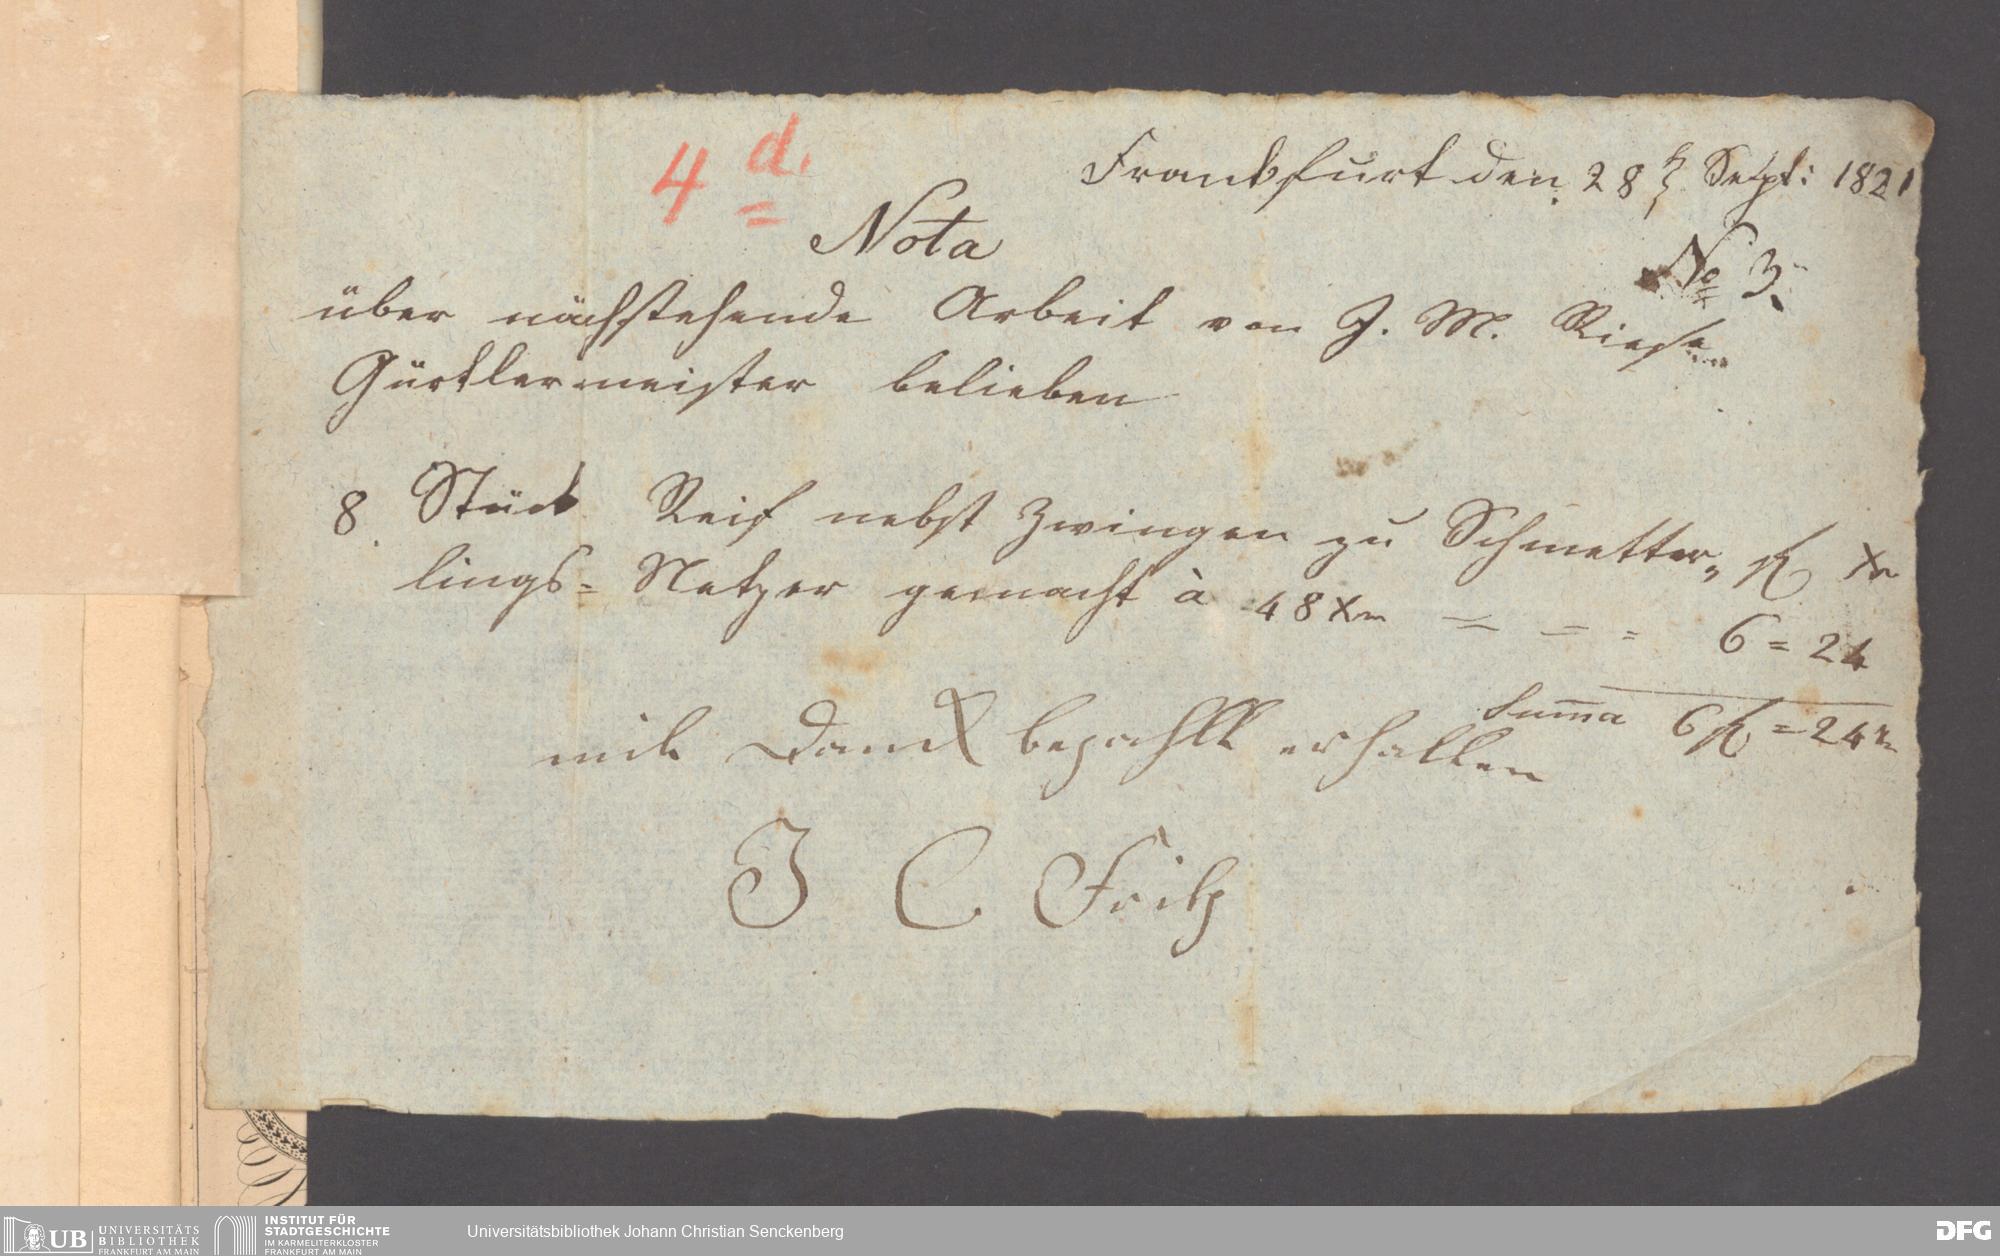 4 d.
Frankfurt den 28 Sept: 1821
Nota
No 3.
über nachstehende Arbeit von J. M. Riese
Gürtlermeister belieben
8 Stück Reif nebst Zwingen zu Schmetter= fl Xr
lings= Netzer gemacht à 48 Xr = = = 6 = 24
Summa 6 fl = 24 Xr
mit Danck bezahlt erhalten
J C Fritz
UB UNIVERSITÄTS
BIBLIOTHEK
FRANKFURT AM MAIN
INSTITUT FÜR
STADTGESCHICHTE
IM KARMELITERKLOSTER
FRANKFURT AM MAIN
Universitätsbibliothek Johann Christian Senckenberg
DFG